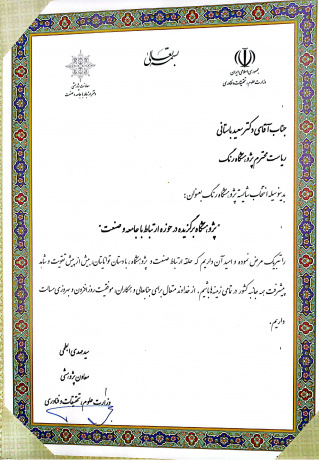 بسمه تعالی
جمهوری اسلامی ایران
وزارت علوم، تحقیقات و فناوری
معاونت پژوهشی
دفتر ارتباط با جامعه و صنعت
جناب آقای دکتر سعید باستانی
ریاست محترم پژوهشگاه رنگ
بدینوسیله انتخاب شایسته پژوهشگاه رنگ بعنوان:
"پژوهشگاه برگزیده در حوزه ارتباط با جامعه و صنعت"
را تبریک عرض نموده و امید آن داریم که حلقه ارتباط صنعت و پژوهشگاه، با دستان توانایتان، بیش از پیش تقویت و شاهد
پیشرفت همه جانبه کشور در تمامی زمینه‌ها باشیم. از خداوند متعال برای جنابعالی و همکاران، موفقیت روزافزون و بهروزی مسالت
داریم.
سید مهدی ابطحی
معاون پژوهشی
وزارت علوم، تحقیقات و فناوری